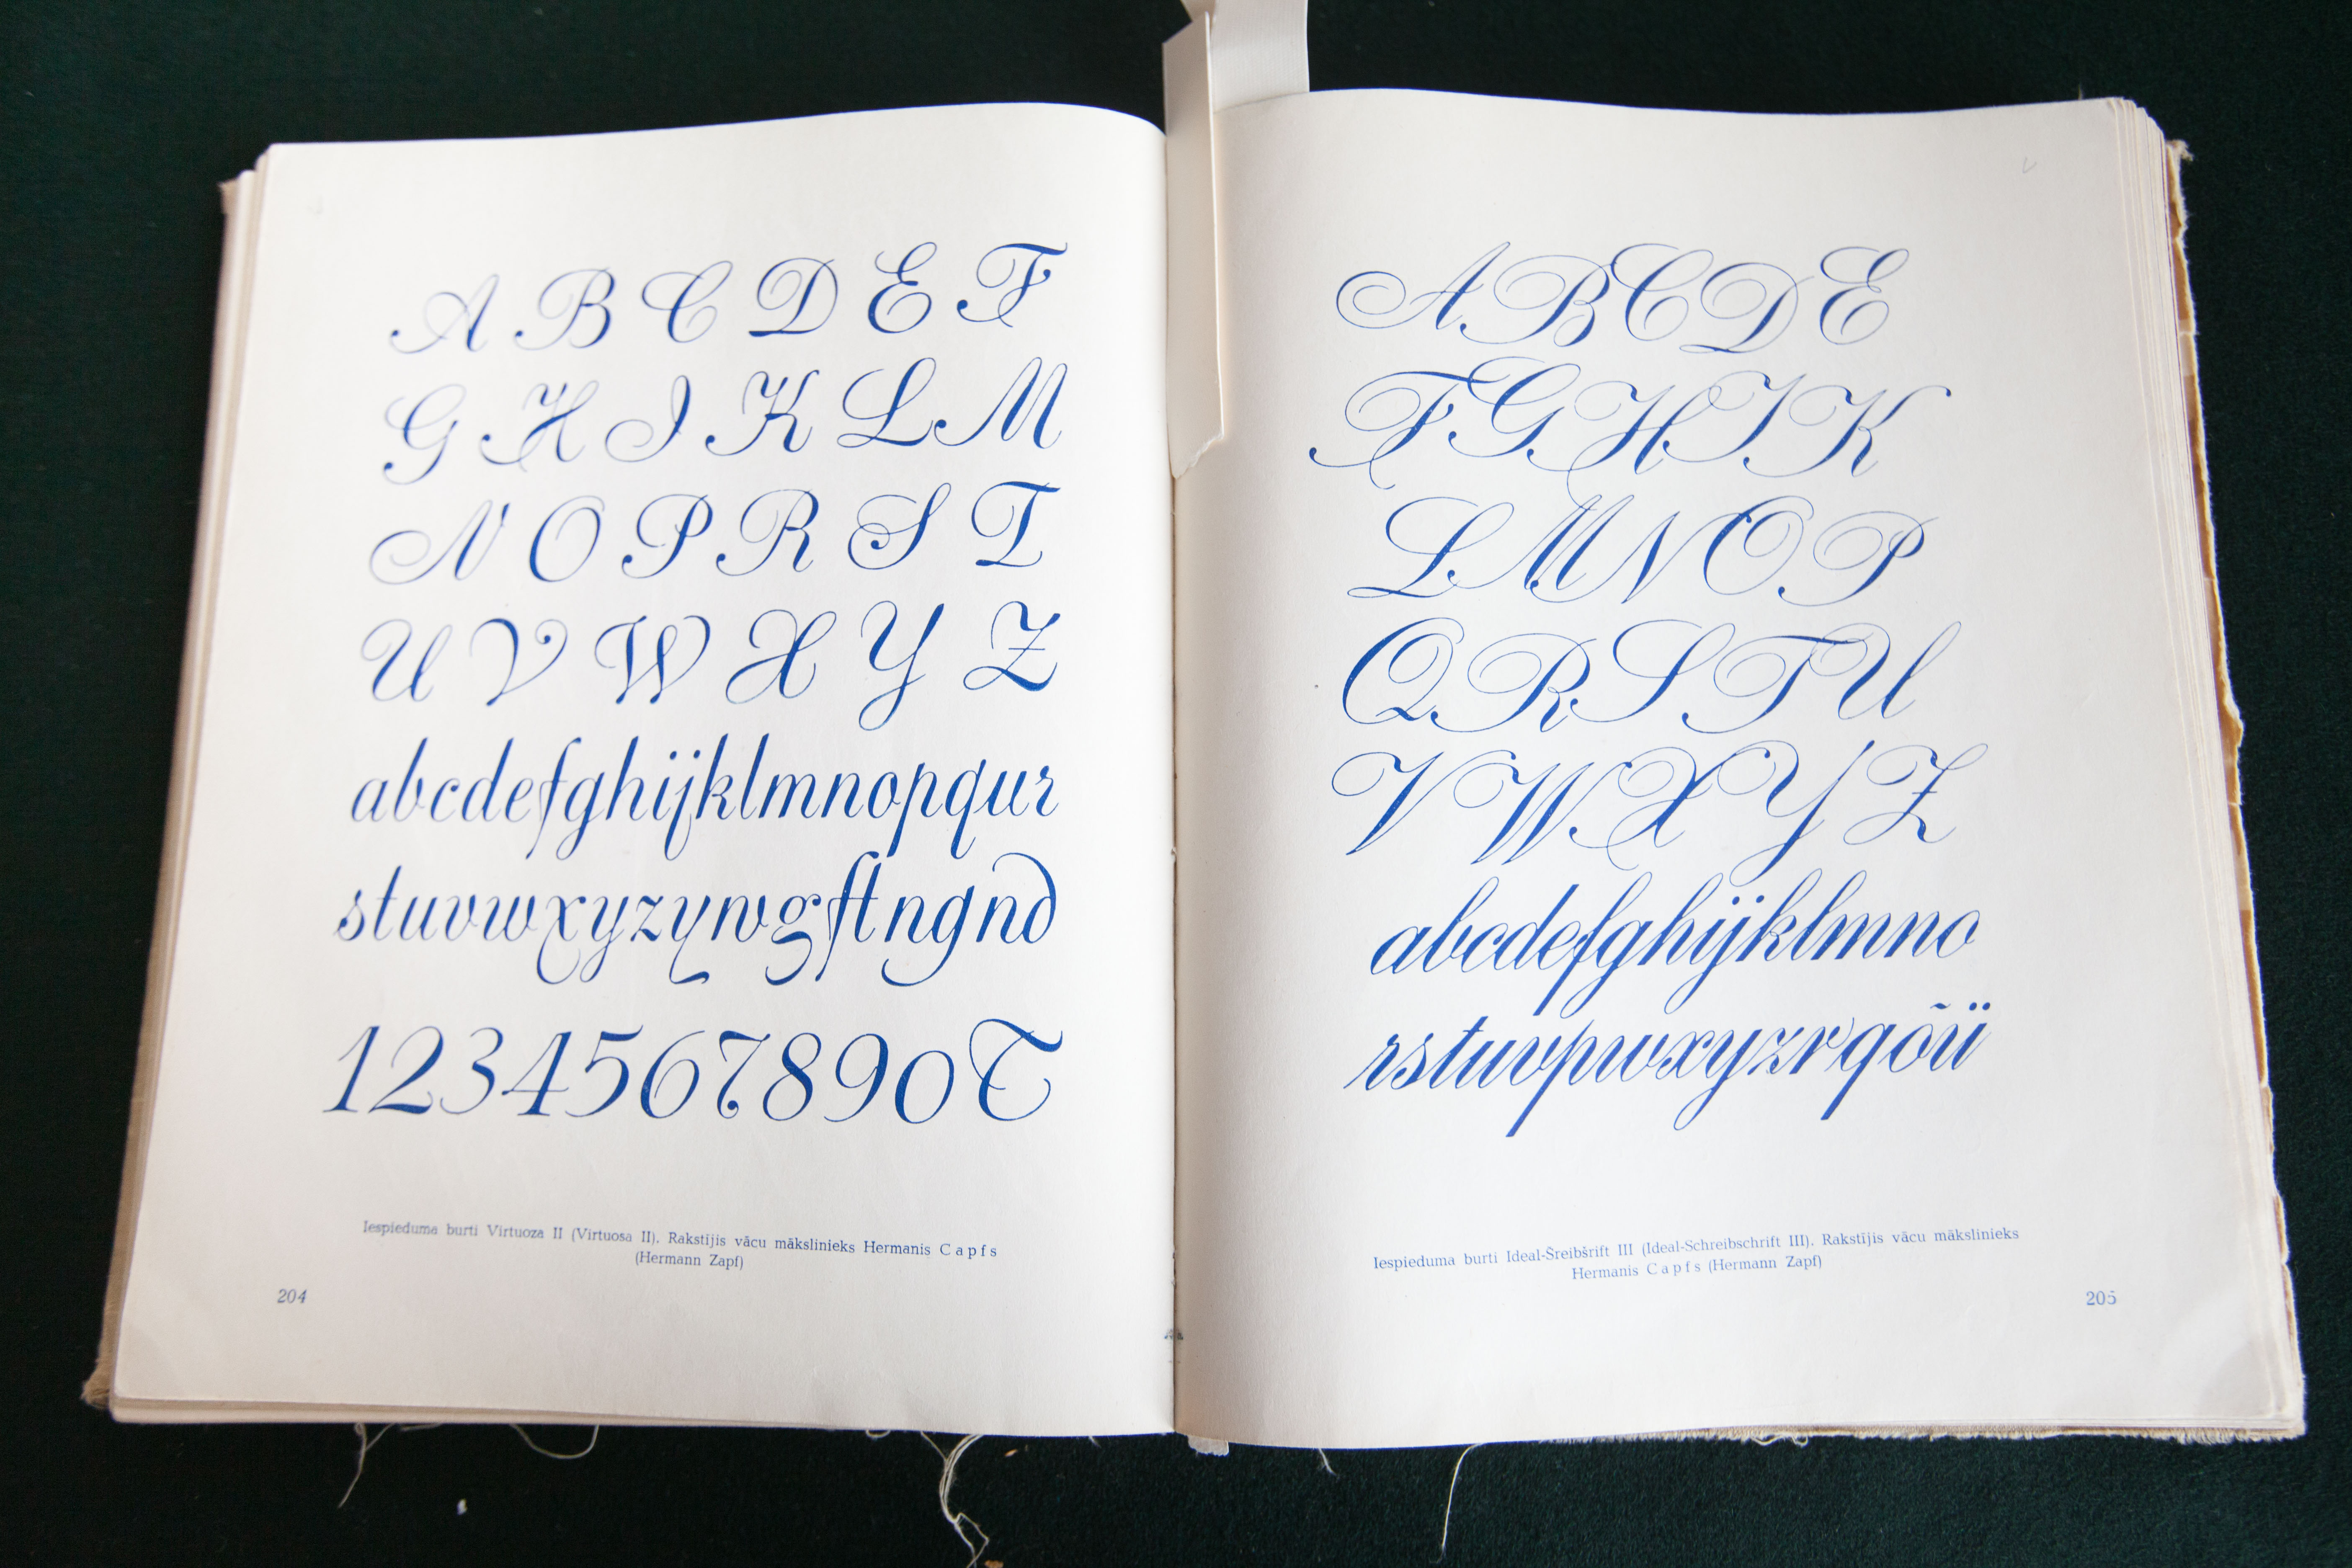 A B C D E F
G H I K L M
N O P R S T
U V W X Y Z
abcdefghijklmnopqur
stuvwxyzywgftngnd
1234567890T
Iespieduma burti Virtuoza II (Virtuosa II). Rakstījis vācu mākslinieks Hermanis Capfs
(Hermann Zapf)
204
ABCDE
FGHIK
LMNOP
QRSTU
VWXYZ
abcdefghijklmno
rstuvpwxyzrqõü
Iespieduma burti Ideal-Šreibšrift III (Ideal-Schreibschrift III). Rakstījis vācu mākslinieks
Hermanis Capfs (Hermann Zapf)
205